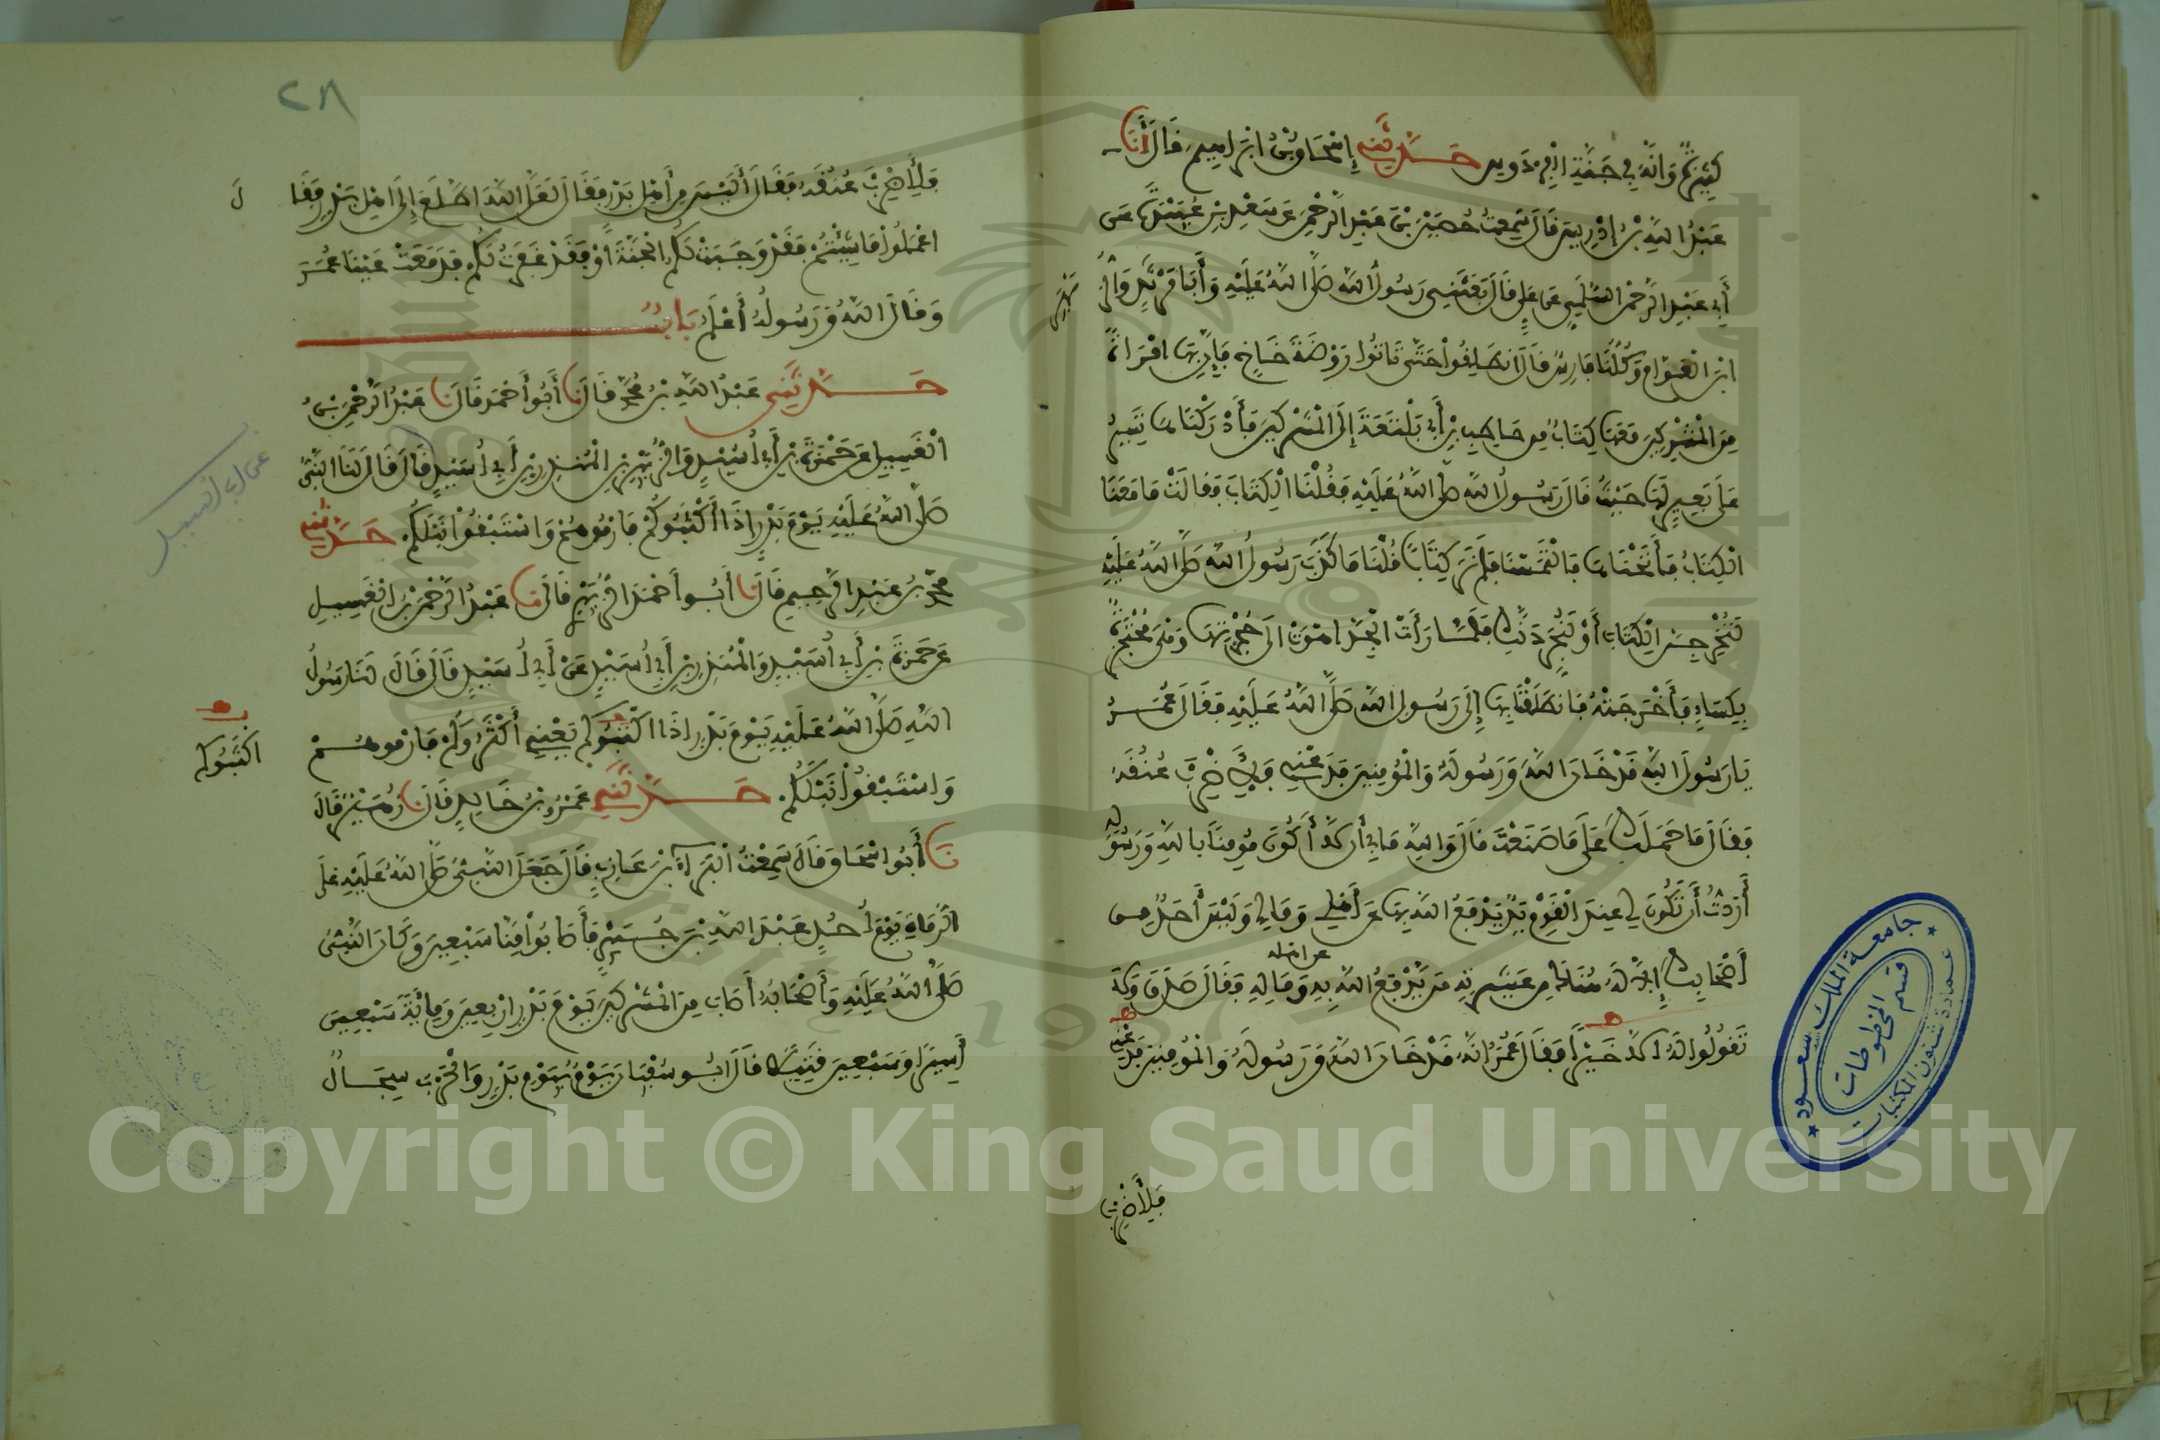 كَثِيرَةٌ وَإِنَّهُ فِي جَنَّةِ الْفِرْدَوْسِ حَدَّثَنِي إِسْحَاقُ بْنُ إِبْرَاهِيمَ قَالَ أَنَا
عَبْدُ اللَّهِ بْنُ إِدْرِيسَ قَالَ سَمِعْتُ حُصَيْنَ بْنَ عَبْدِ الرَّحْمَنِ عَنْ سَعْدِ بْنِ عُبَيْدَةَ عَنْ
أَبِي عَبْدِ الرَّحْمَنِ السُّلَمِيِّ عَنْ عَلِيٍّ قَالَ بَعَثَنِي رَسُولُ اللَّهِ صَلَّى اللَّهُ عَلَيْهِ وَأَبَا مَرْثَدٍ وَالزُّ
بَيْرَ
ابْنَ الْعَوَّامِ وَكُلُّنَا فَارِسٌ قَالَ انْطَلِقُوا حَتَّى تَاتُوا رَوْضَةَ خَاخٍ فَإِنَّ بِهَا امْرَأَةً
مِنَ الْمُشْرِكِينَ مَعَهَا كِتَابٌ مِنْ حَاطِبِ بْنِ أَبِي بَلْتَعَةَ إِلَى الْمُشْرِكِينَ فَأَدْرَكْنَاهَا تَسِيرُ
عَلَى بَعِيرٍ لَهَا حَيْثُ قَالَ رَسُولُ اللَّهِ صَلَّى اللَّهُ عَلَيْهِ فَقُلْنَا الْكِتَابَ فَقَالَتْ مَا مَعَنَا
الْكِتَابُ فَأَنَخْنَاهَا فَالْتَمَسْنَا فَلَمْ نَرَ كِتَاباً قُلْنَا مَا كَذَبَ رَسُولُ اللَّهِ صَلَّى اللَّهُ عَلَيْهِ
لَتُخْرِجِنَّ الْكِتَابَ أَوْ لَنُجَرِّدَنَّكِ فَلَمَّا رَأَتِ الْجِدَّ اهْوَتْ الَى حُجْزَتِهَا وَهْيَ مُحْتَجِزَةٌ
بِكِسَاءٍ فَأَخْرَجَتْهُ فَانْطَلَقْنَا بِهَا إِلَى رَسُولِ اللَّهِ صَلَّى اللَّهُ عَلَيْهِ فَقَالَ عُمَرُ
يَا رَسُولَ اللَّهِ قَدْ خَانَ اللَّهَ وَرَسُولَهُ وَالْمُؤْمِنِينَ فَدَعْنِي فَلِأَضْرِبَ عُنُقَهُ
فَقَالَ مَا حَمَلَكَ عَلَى مَا صَنَعْتَ قَالَ وَاللَّهِ مَا بِي أَن لَّا أَكُونَ مُومِناً بِاللَّهِ وَرَسُولِهِ
أَرَدْتُ أَنْ تَكُونَ لِي عِنْدَ الْقَوْمِ يَدٌ يَدْفَعُ اللَّهُ بِهَا عَنْ أَهْلِي وَمَالِي وَلَيْسَ أَحَدٌ مِنْ
أَصْحَابِكَ إِلَّا لَهُ هُنَاكَ مِنْ عَشِيرَتِهِ مَنْ يَدْفَعُ اللَّهُ بِهِ عن اهله وَمَالِهِ فَقَالَ صَدَقَ وَلَا
تَقُولُوا لَهُ الَّا خَيْراً فَقَالَ عُمَرُ إِنَّهُ قَدْ خَانَ اللَّهَ وَرَسُولَهُ وَالْمُؤْمِنِينَ فَدَعْنِي
فَلِأَضْرِبَ
٢٨
فَلِأَضْرِبَ عُنُقَهُ فَقَالَ أَلَيْسَ مِنْ أَهْلِ بَدْرٍ فَقَالَ لَعَلَّ اللَّهَ اطَّلَعَ إِلَى اهْلِ بَدْرٍ فَقَا
لَ
اعْمَلُوا مَا شِئْتُمْ فَقَدْ وَجَبَتْ لَكُمُ الْجَنَّةُ أَوْ فَقَدْ غَفَرْتُ لَكُمْ فَدَمَعَتْ عَيْنَا عُمَرَ
وَقَالَ اللَّهُ وَرَسُولُهُ أَعْلَمُ بَابٌ
حَدَّثَنِي عَبْدُ اللَّهِ بْنُ مُحَمَّدٍ قَالَ نَا أَبُو أَحْمَدَ قَالَ نَا عَبْدُ الرَّحْمَنِ بْنُ
الْغَسِيلِ عَنْ حَمْزَةَ بْنِ أَبِي أُسَيْدٍ وَالزُّبَيْرِ بْنِ الْمُنْذِرِ بْنِ أَبِي أُسَيْدٍ قَالَ قَالَ لَنَا النَّبِيُّ
عن ابي اسيد
صَلَّى اللَّهُ عَلَيْهِ يَوْمَ بَدْرٍ إِذَا أَكْثَبُوكُمْ فَارْمُوهُمْ وَاسْتَبْقُوا نَبْلَكُمْ حَدَّثَنِي
مُحَمَّدُ بْنُ عَبْدِ الرَّحِيمِ قَالَ نَا أَبُو أَحْمَدَ الزُّبَيْرِيُّ قَالَ نَا عَبْدُ الرَّحْمَنِ بْنُ الْغَسِيلِ
عَنْ حَمْزَةَ بْنِ أَبِي أُسَيْدٍ وَالْمُنْذِرِ بْنِ أَبِي أُسَيْدٍ عَنْ أَبِي أُسَيْدٍ قَالَ قَالَ لَنَا رَسُولُ
اللَّهِ صَلَّى اللَّهُ عَلَيْهِ يَوْمَ بَدْرٍ إِذَا اكْثَبُوكُمْ يَعْنِي أَكْثَرُوكُمْ فَارْمُوهُمْ
اكثَبُوكم
وَاسْتَبْقُوا نَبْلَكُمْ حَدَّثَنِي عَمْرُو بْنُ خَالِدٍ قَالَ نَا زُهَيْرٌ قَالَ
نَا أَبُو اسْحَاقَ قَالَ سَمِعْتُ الْبَرَاءَ بْنَ عَازِبٍ قَالَ جَعَلَ النَّبِيُّ صَلَّى اللَّهُ عَلَيْهِ عَلَى
الرُّمَاةِ يَوْمَ أُحُدٍ عَبْدَ اللَّهِ بْنَ جُبَيْرٍ فَأَصَابُوا مِنَّا سَبْعِينَ وَكَانَ النَّبِيُّ
صَلَّى اللَّهُ عَلَيْهِ وَأَصْحَابُهُ أَصَابَ مِنَ الْمُشْرِكِينَ يَوْمَ بَدْرٍ ارْبَعِينَ وَمِائَةً سَبْعِينَ
أَسِيرًا وَسَبْعِينَ قَتِيلًا قَالَ أَبُو سُفْيَانَ يَوْمٌ بِيَوْمِ بَدْرٍ وَالْحَرْبُ سِجَالٌ
جامعة الملك سعود
قسم المخطوطات
عمادة شئون المكتبات
Copyright © King Saud University